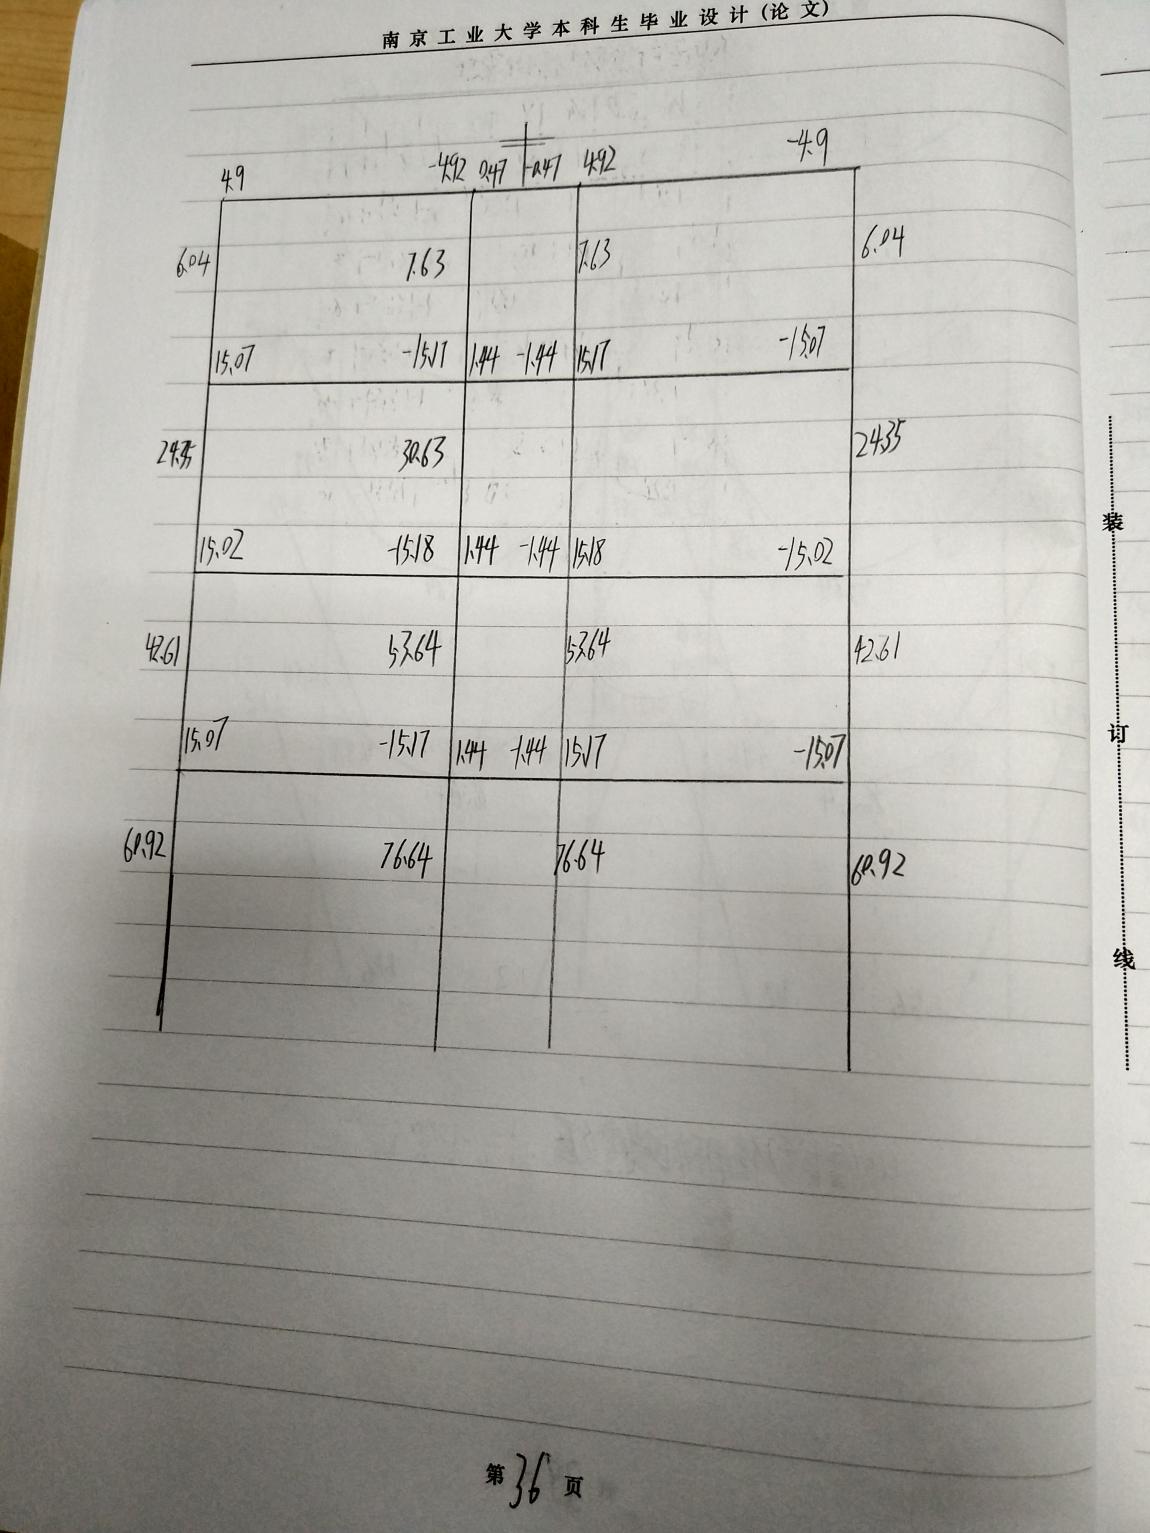 南京工业大学本科生毕业设计(论文)
4.9 -4.92 0.47 -0.47 4.92 -4.9
6.04 7.63 7.63 6.04
15.07 -15.17 1.44 -1.44 15.17 -15.07
24.35 30.63 24.35
15.02 -15.18 1.44 -1.44 15.18 -15.02
42.61 53.64 53.64 42.61
15.07 -15.17 1.44 -1.44 15.17 -15.07
60.92 76.64 76.64 60.92
装
订
线
第36页